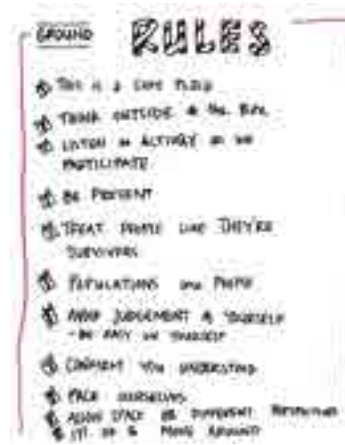 GROUND RULES
THIS IS A SAFE PLACE
THINK OUTSIDE THE BOX
LISTEN ACTIVELY
PARTICIPATE
BE PRESENT
TREAT PEOPLE LIKE THEY'RE
SURVIVORS
POPULATIONS PEOPLE
AVOID JUDGEMENT YOURSELF
- BE EASY ON YOURSELF
YOU UNDERSTAND
OURSELVES
ALLOW SPACE DIFFERENT
MOVE AROUND